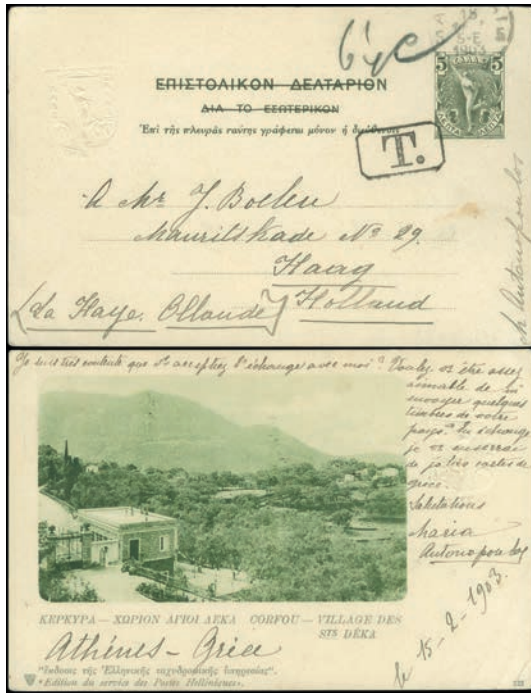 6¼c
15
5-E
1903
ΕΛΛΑΣ
5 5
ΛΕΠΤΑ ΛΕΠΤΑ
ΕΠΙΣΤΟΛΙΚΟΝ ΔΕΛΤΑΡΙΟΝ
ΔΙΑ ΤΟ ΕΣΩΤΕΡΙΚΟΝ
Ἐπὶ τῆς πλευρᾶς ταύτης γράφεται μόνον ἡ διεύθυνσις
T.
A Mr J. Boelen
Mauritskade No 29.
Haag
(La Haye. Ollande) Holland
Antonopoulos
Je suis très contente que vs acceptez l'échange avec moi? Voulez vs être assez
aimable de m'
envoyer quelques
timbres de votre
pays? En échange
je vs enverrai
de jolies cartes de
grèce.
Salutations
Maria
Antonopoulos
ΚΕΡΚΥΡΑ — ΧΩΡΙΟΝ ΑΓΙΟΙ ΔΕΚΑ CORFOU — VILLAGE DES
STS DÉKA
Athénes - Grèce
le 15-2-1903.
"Ἔκδοσις τῆς Ἑλληνικῆς ταχυδρομικῆς ὑπηρεσίας".
«Edition du service des Postes Helléniques».